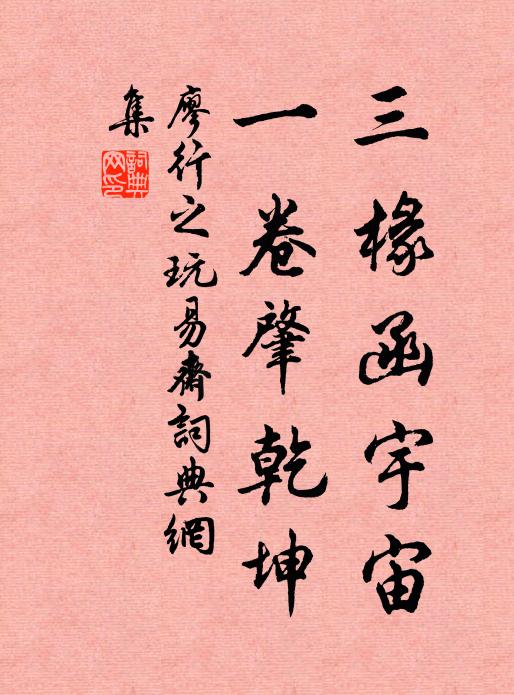 三椽函宇宙
一卷肇乾坤
廖行之玩易齋詞典網
集
詞典网印